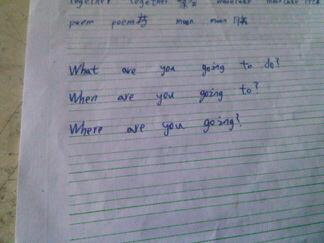 together together mooncake mooncake
poem poem 诗 moon moon
What are you going to do?
When are you going to?
Where are you going?